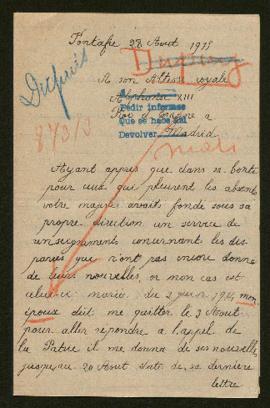 Pontafie 28 Aout 1915
Dupuy
Dispués
A son Altesse royale
Alphonse XIII
Pedir informes
Que se habe
Roi d'Espagne a
Devolver
Madrid
87313
mari
Ayant appris que dans sa bonté
pour ceux qui pleurent les absents
votre majesté avait fondé sous sa
propre direction un service de
renseignements concernant les dis-
parus que n'ont pas encore donné
de leurs nouvelles, or mon cas est
celui-ci mariée du 2 1914 mon
époux dût me quitter le 3 Aout
pour aller répondre a l'appel de
la Patrie il me donna de ses nouvelles
jusqu'au 20 Aout date de sa dernière
lettre